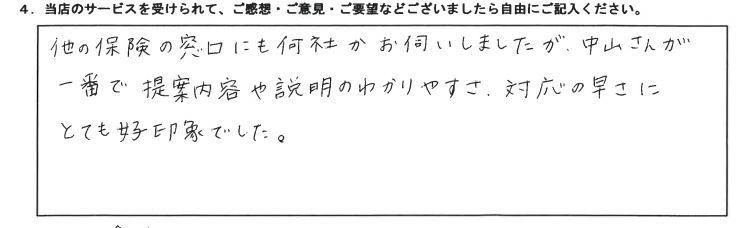 4. 当店のサービスを受けられて、ご感想・ご意見・ご要望などございましたら自由にご記入ください。
他の保険の窓口にも何社かお伺いしましたが、中山さんが
一番で提案内容や説明のわかりやすさ、対応の早さに
とても好印象でした。